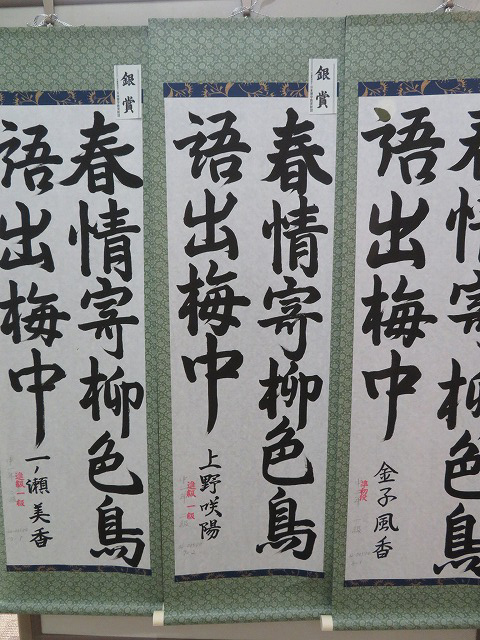 銀賞
春情寄柳色鳥
語出梅中
金子風香
準初段
銀賞
春情寄柳色鳥
語出梅中
上野咲陽
準一級
春情寄柳色鳥
語出梅中
一ノ瀬美香
一級